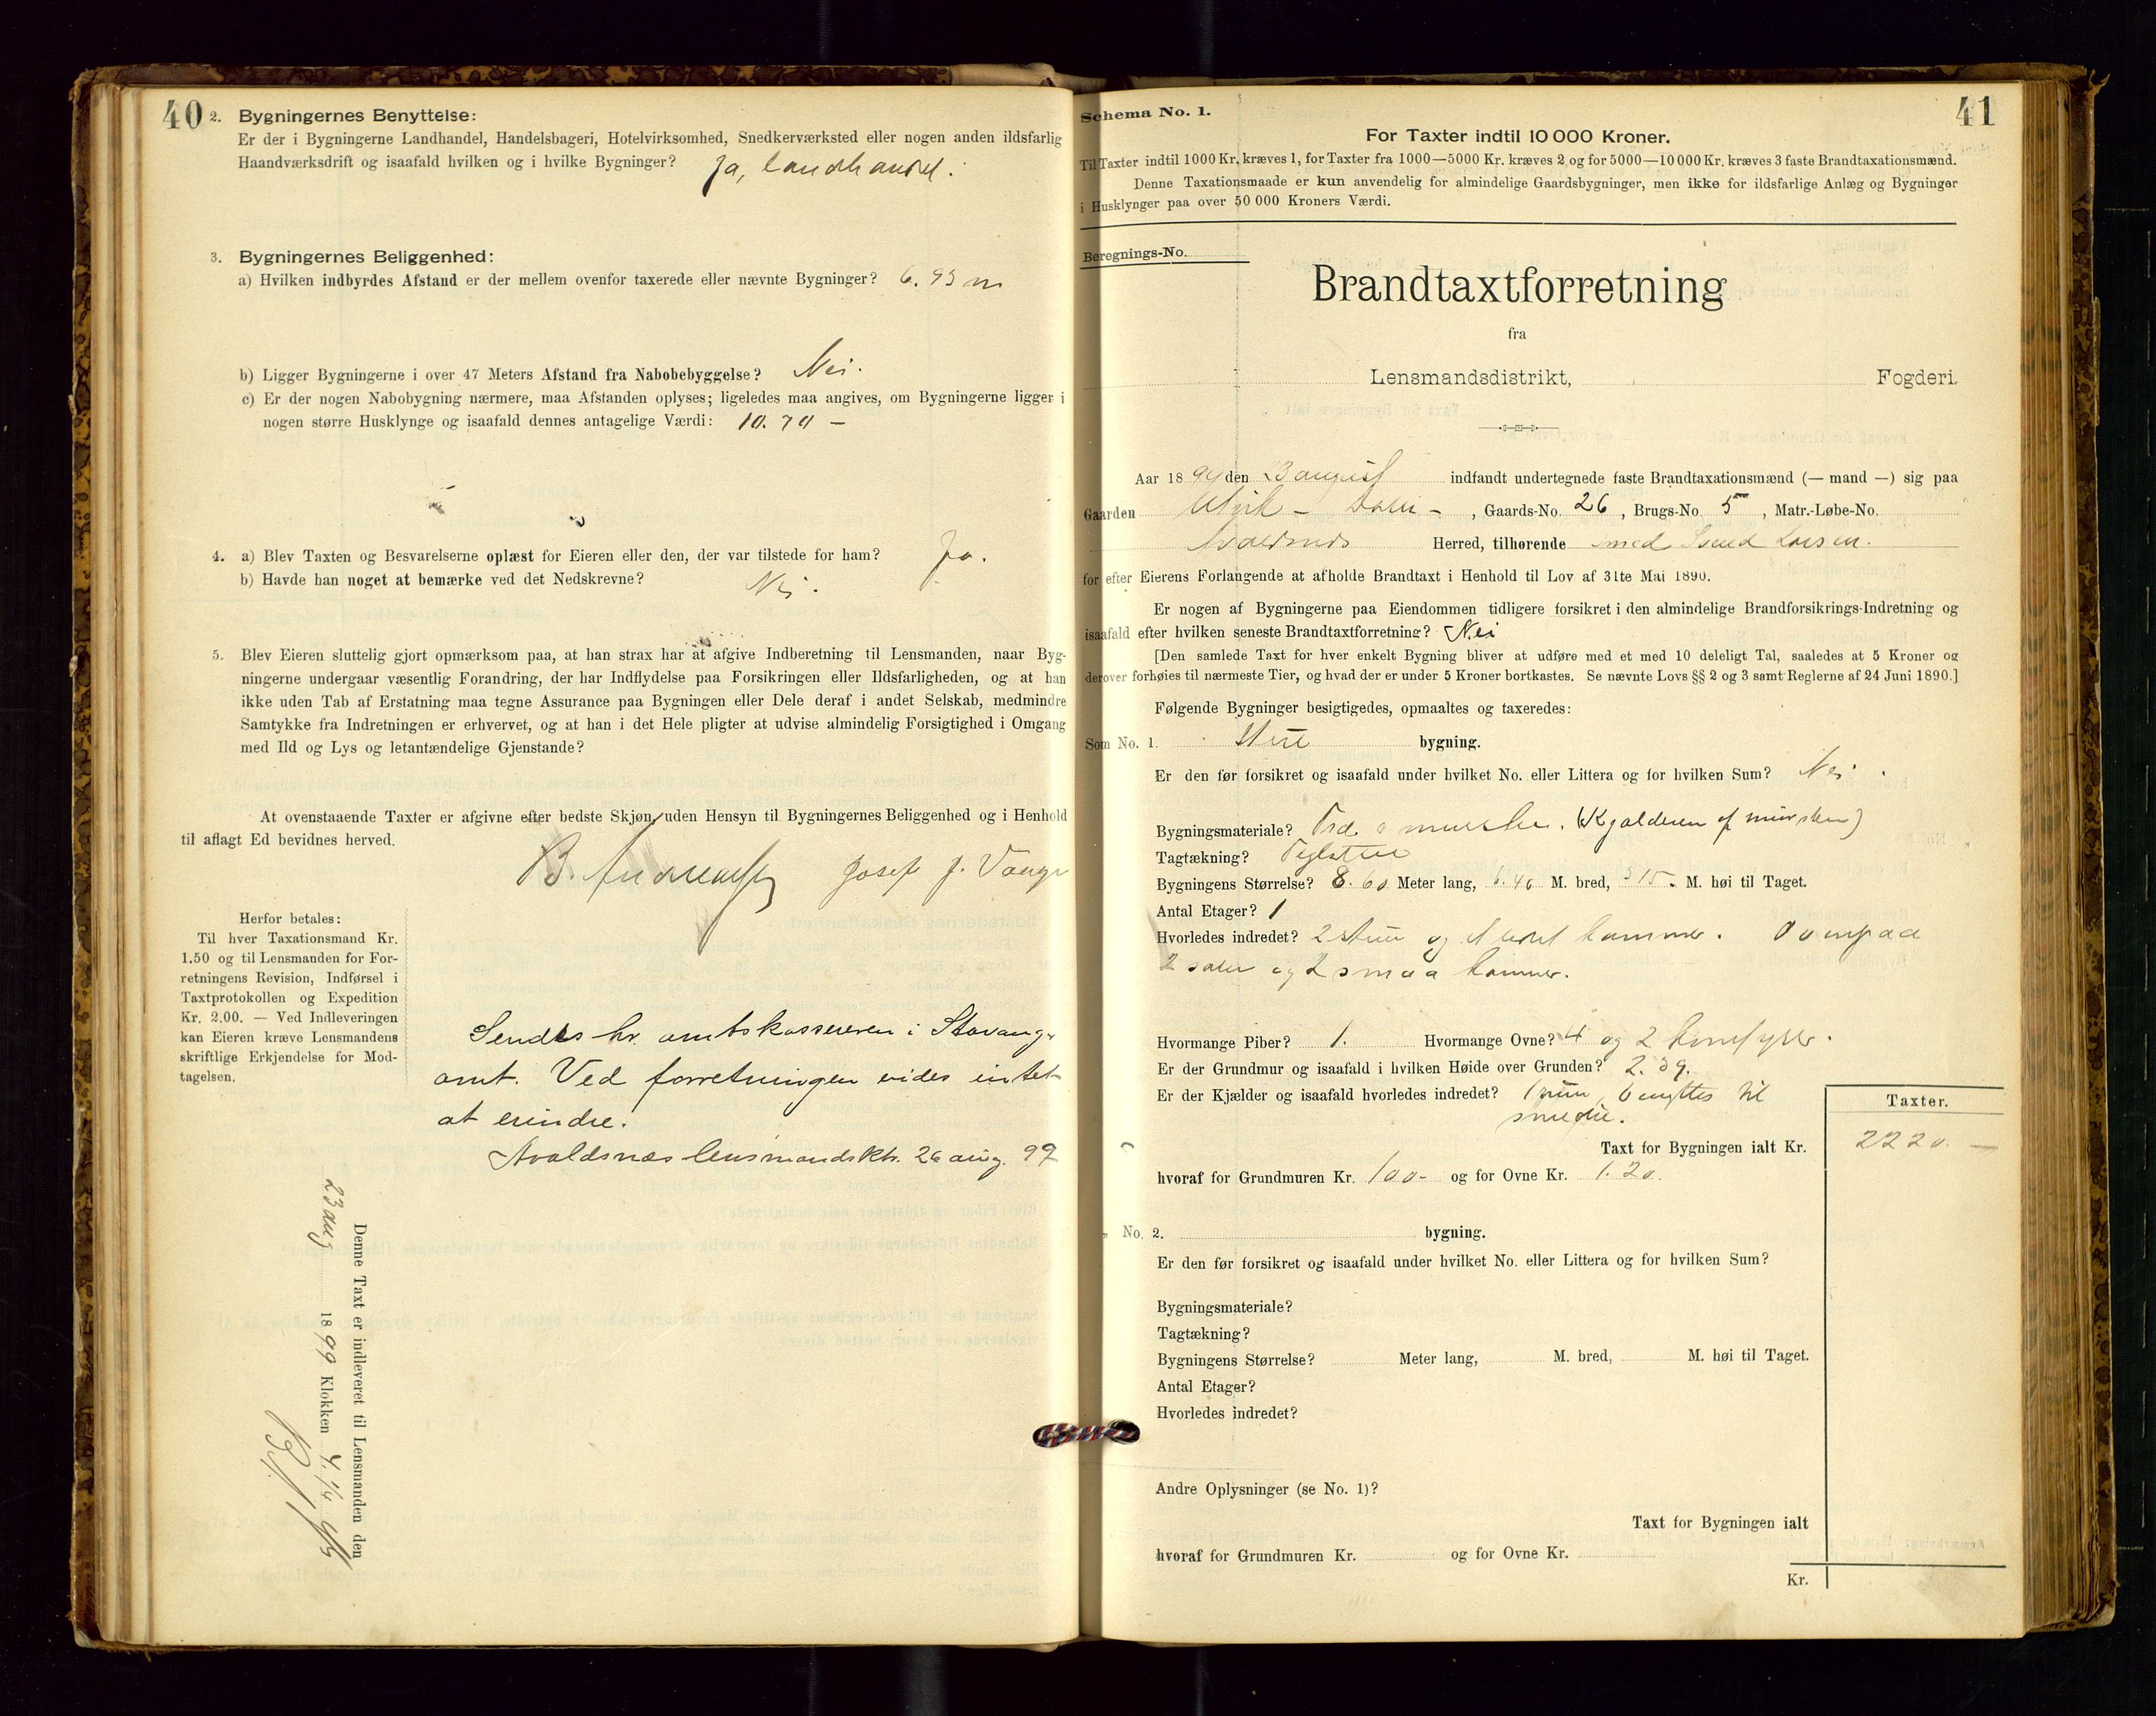 40
2. Bygningernes Benyttelse:
Er der i Bygningerne Landhandel, Handelsbageri, Hotelvirksomhed, Snedkerværksted eller nogen anden ildsfarlig
Haandværksdrift og isaafald hvilken og i hvilke Bygninger? Ja, landhandel.
3. Bygningernes Beliggenhed:
a) Hvilken indbyrdes Afstand er der mellem ovenfor taxerede eller nævnte Bygninger? 6.93 m
b) Ligger Bygningerne i over 47 Meters Afstand fra Nabobebyggelse? Nei.
c) Er der nogen Nabobygning nærmere, maa Afstanden oplyses; ligeledes maa angives, om Bygningerne ligger i
nogen større Husklynge og isaafald dennes antagelige Værdi: 10.70 —
4. a) Blev Taxten og Besvarelserne oplæst for Eieren eller den, der var tilstede for ham? Ja.
b) Havde han noget at bemærke ved det Nedskrevne? Nei.
5. Blev Eieren sluttelig gjort opmærksom paa, at han strax har at afgive Indberetning til Lensmanden, naar Byg-
ningerne undergaar væsentlig Forandring, der har Indflydelse paa Forsikringen eller Ildsfarligheden, og at han
ikke uden Tab af Erstatning maa tegne Assurance paa Bygningen eller Dele deraf i andet Selskab, medmindre
Samtykke fra Indretningen er erhvervet, og at han i det Hele pligter at udvise almindelig Forsigtighed i Omgang
med Ild og Lys og letantændelige Gjenstande?
At ovenstaaende Taxter er afgivne efter bedste Skjøn, uden Hensyn til Bygningernes Beliggenhed og i Henhold
til aflagt Ed bevidnes herved.
B. Josef J. Vange
Herfor betales:
Til hver Taxationsmand Kr.
1.50 og til Lensmanden for For-
retningens Revision, Indførsel i
Taxtprotokollen og Expedition
Kr. 2.00. — Ved Indleveringen
kan Eieren kræve Lensmandens
skriftlige Erkjendelse for Mod-
tagelsen.
Sendes hr. amtskassereren i Stavanger
amt. Ved forretningen vides intet
at erindre.
Avaldsnæs lensmandsktr. 26 aug. 99
Denne Taxt er indleveret til Lensmanden den
23 aug 1899 Klokken
41
Schema No. 1.
For Taxter indtil 10 000 Kroner.
Til Taxter indtil 1000 Kr. kræves 1, for Taxter fra 1000—5000 Kr. kræves 2 og for 5000—10 000 Kr. kræves 3 faste Brandtaxationsmænd.
Denne Taxationsmaade er kun anvendelig for almindelige Gaardsbygninger, men ikke for ildsfarlige Anlæg og Bygninger
i Husklynger paa over 50 000 Kroners Værdi.
Beregnings-No.
Brandtaxtforretning
fra
Lensmandsdistrikt, Fogderi.
Aar 1899 den 23 august indfandt undertegnede faste Brandtaxationsmænd (— mand —) sig paa
Gaarden Utvik - , Gaards-No. 26, Brugs-No. 5, Matr.-Løbe-No.
Herred, tilhørende
for efter Eierens Forlangende at afholde Brandtaxt i Henhold til Lov af 31te Mai 1890.
Er nogen af Bygningerne paa Eiendommen tidligere forsikret i den almindelige Brandforsikrings-Indretning og
isaafald efter hvilken seneste Brandtaxtforretning? Nei
[Den samlede Taxt for hver enkelt Bygning bliver at udføre med et med 10 deleligt Tal, saaledes at 5 Kroner og
derover forhøies til nærmeste Tier, og hvad der er under 5 Kroner bortkastes. Se nævnte Lovs §§ 2 og 3 samt Reglerne af 24 Juni 1890.]
Følgende Bygninger besigtigedes, opmaaltes og taxeredes:
Som No. 1. bygning.
Er den før forsikret og isaafald under hvilket No. eller Littera og for hvilken Sum? Nei.
Bygningsmateriale? Træ. (Kjælderen af mursten)
Tagtækning? Teglsten
Bygningens Størrelse? 8.60 Meter lang, 6.40 M. bred, 3 15 M. høi til Taget.
Antal Etager? 1
Hvorledes indredet? 2 stuer og et kammer. Ovenpaa
2 saler og 2 smaa kammer.
Hvormange Piber? 1. Hvormange Ovne? 4 og 2
Er der Grundmur og isaafald i hvilken Høide over Grunden? 2.39.
Er der Kjælder og isaafald hvorledes indredet? 1 rum, benyttes til
smedie.
Taxter.
Taxt for Bygningen ialt Kr. 2220. —
hvoraf for Grundmuren Kr. 100- og for Ovne Kr. 1.20.
„ No. 2. bygning.
Er den før forsikret og isaafald under hvilket No. eller Littera og for hvilken Sum?
Bygningsmateriale?
Tagtækning?
Bygningens Størrelse? Meter lang, M. bred, M. høi til Taget.
Antal Etager?
Hvorledes indredet?
Andre Oplysninger (se No. 1)?
Taxt for Bygningen ialt
hvoraf for Grundmuren Kr. og for Ovne Kr.
Kr.